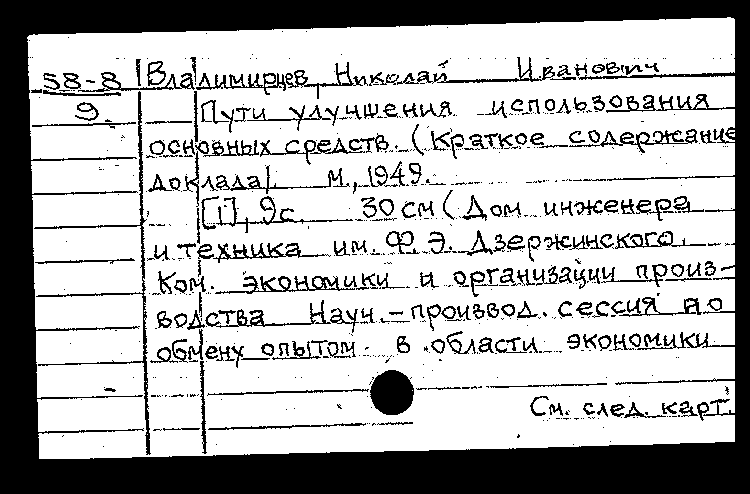 58-8 Владимирцев, Николай Иванович
9. Пути улучшения использования
основных средств. (Краткое содержание
доклада). М., 1949.
[1], 9 с. 30 см (Дом инженера
и техника им. Ф. Э. Дзержинского.
Ком. экономики и организации произ-
водства. Науч.-производ. сессия по
обмену опытом в области экономики
См. след. карт.